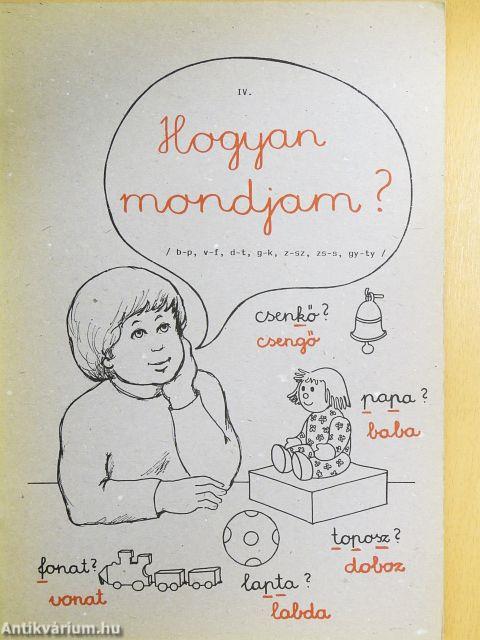 IV.
Hogyan
mondjam?
/ b-p, v-f, d-t, g-k, z-sz, zs-s, gy-ty /
csenkő?
csengő
papa?
baba
toposz?
doboz
fonat?
vonat
lapta?
labda
Antikvárium.hu